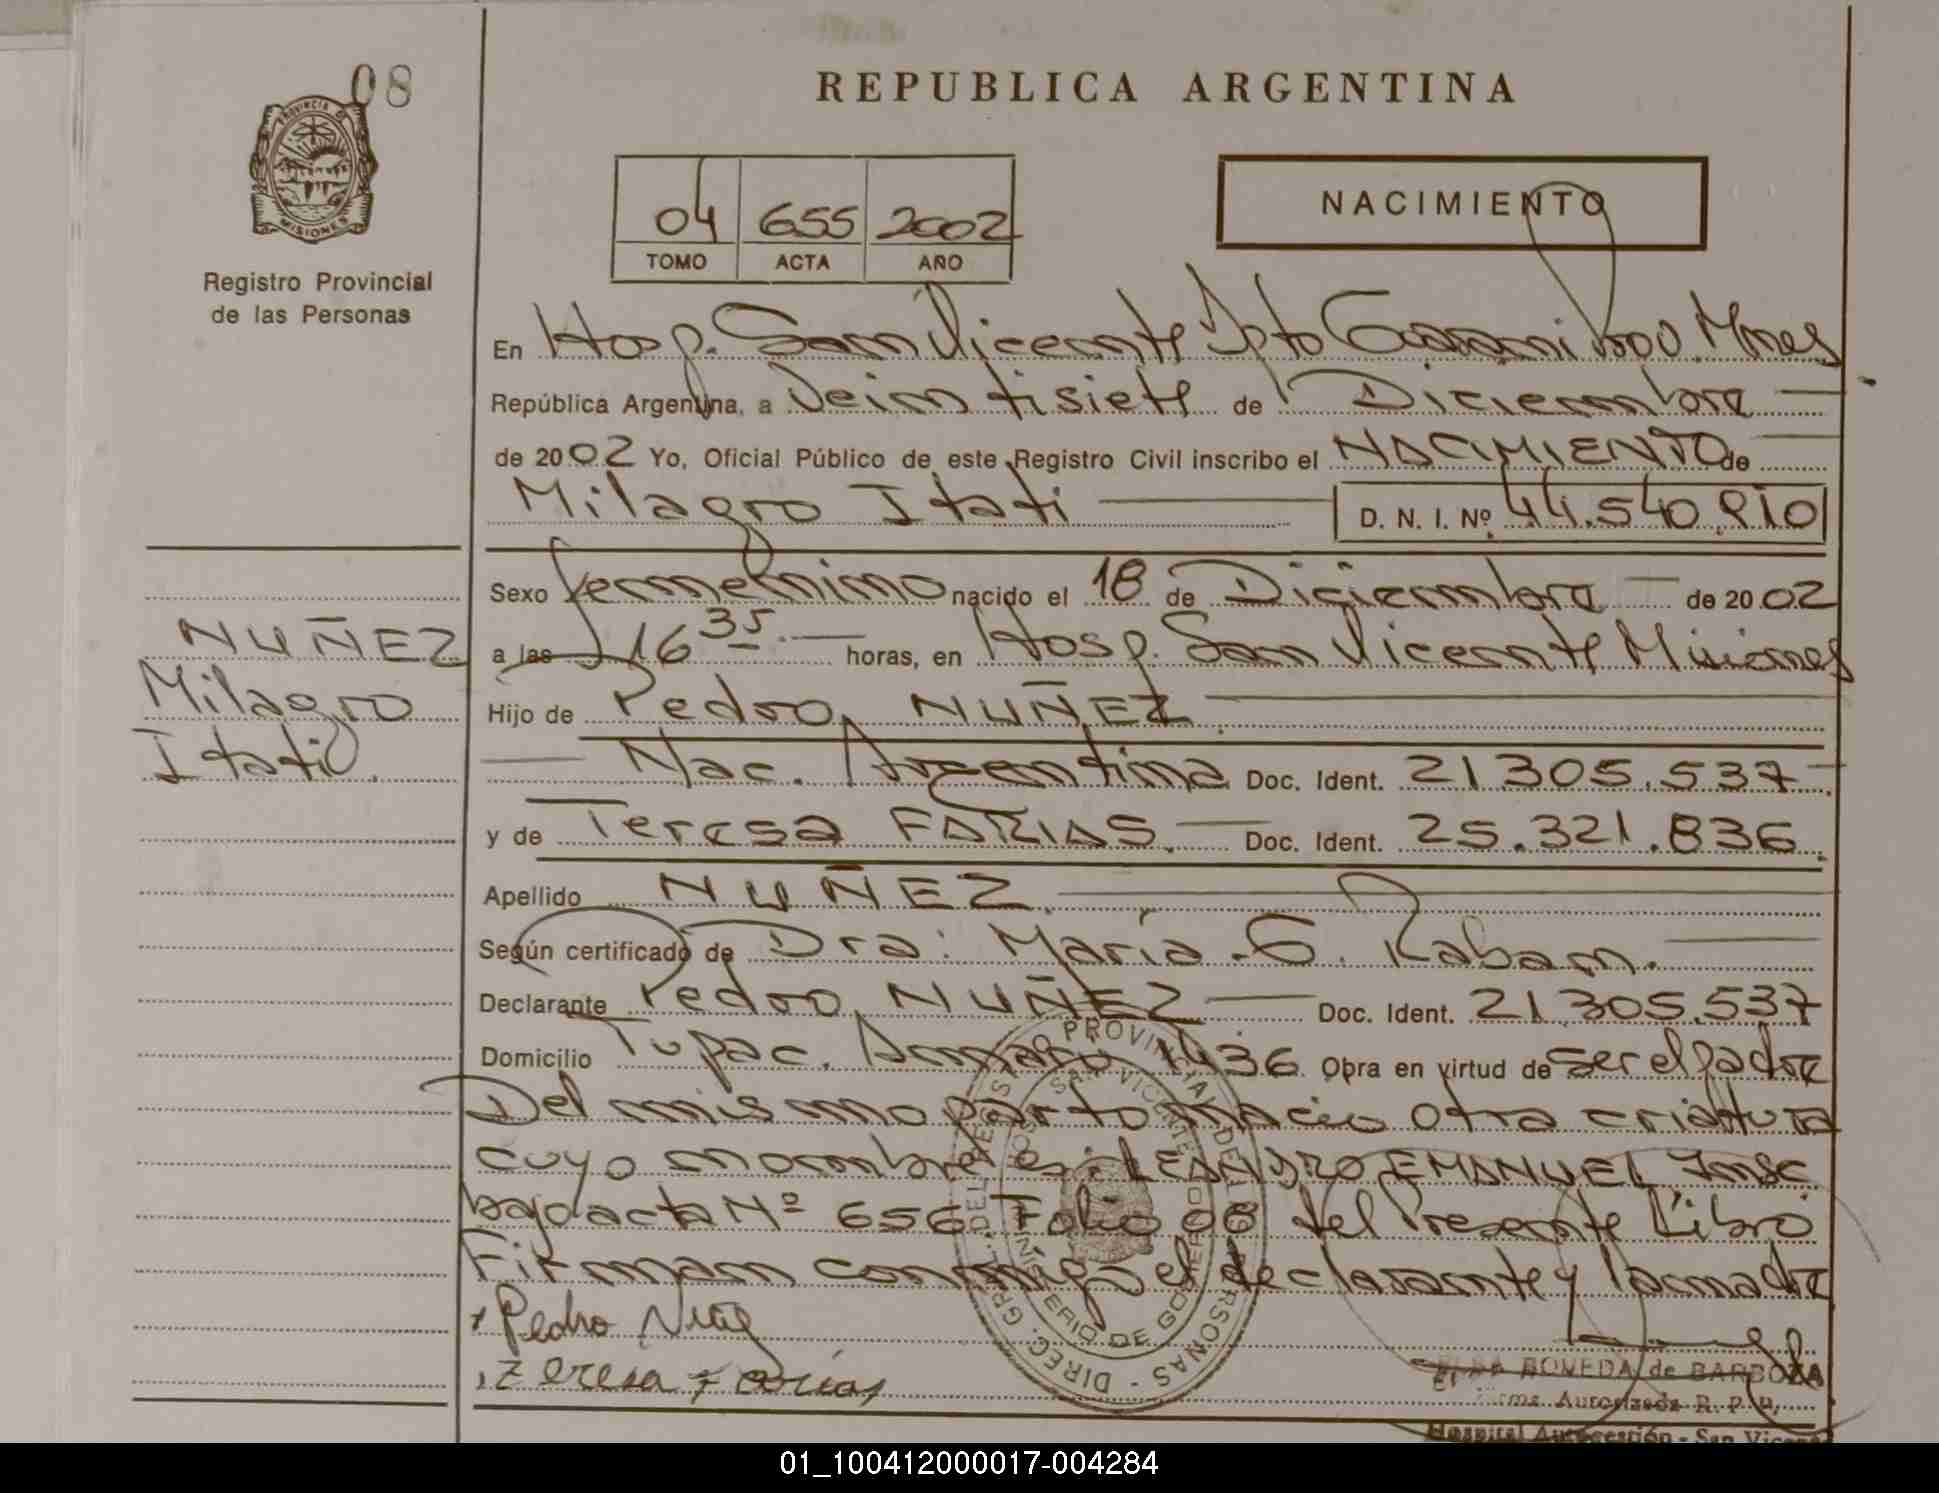 08
PROVINCIA DE
MISIONES
Registro Provincial
de las Personas
REPUBLICA ARGENTINA
04 655 2002
TOMO ACTA AÑO
NACIMIENTO
En Hosp. San Vicente Dpto Guarani Prov. Mnes
República Argentina, a Veintisiete de Diciembre
de 2002 Yo, Oficial Público de este Registro Civil inscribo el NACIMIENTO de
Milagro Itati D. N. I. Nº 44.540.810
Sexo femenino nacido el 18 de Diciembre de 2002
a las 16 35 horas, en Hosp. San Vicente Misiones
Hijo de Pedro NUÑEZ
Nac. Argentina Doc. Ident. 21.305.537
y de Teresa FARIAS. Doc. Ident. 25.321.836
Apellido NUÑEZ
Según certificado de Dra: María G. Kabam.
Declarante Pedro NUÑEZ Doc. Ident. 21.305.537
Domicilio Tupac. Amaru 1436 Obra en virtud de ser el padre
Del mismo parto nacio otra criatura
cuyo nombre es: LEANDRO EMANUEL Insc.
bajo acta Nº 656 Folio 08 del Presente Libro
Firman conmigo el declarante y la madre
Pedro
Teresa Farias
NUÑEZ
Milagro
Itati
BOVEDA de BARBOZA
Autorizada R. P. P.
Hospital Autogestión - San Vicente
01_100412000017-004284